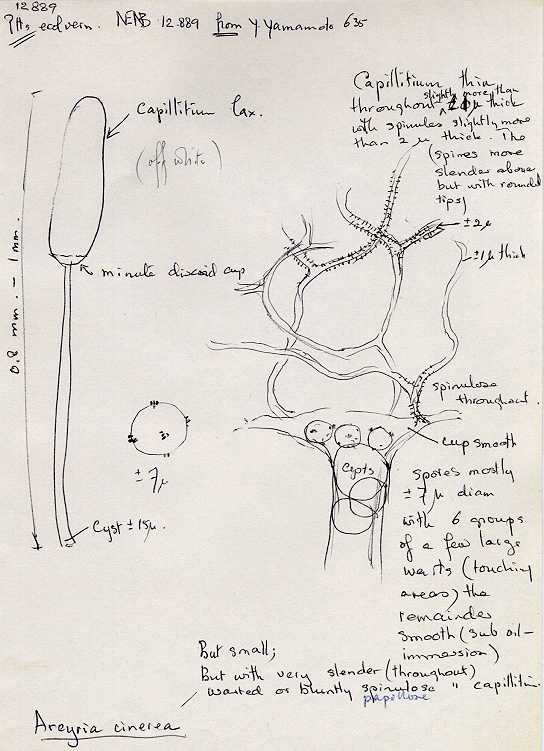 12889
NENB 12.889 from Y. Yamamoto 635
Capillitium lax.
(off white)
minute discoid cup
0.8 mm. – 1 mm.
± 7µ
Cyst ± 15µ.
Capillitium thin
slightly more than
throughout 2µ thick
with spinules slightly more
than 2 µ thick. The
(spines more
slender above
but with rounded
tips)
± 2µ
± 1µ thick
spinulose
throughout.
cup smooth
Cysts
spores mostly
± 7µ diam
with 6 groups
of a few large
warts (touching
areas) the
remainder
smooth (sub oil-
immersion)
But small;
But with very slender (throughout)
warted or bluntly spinulose " capillitium.
papillose
Arcyria cinerea